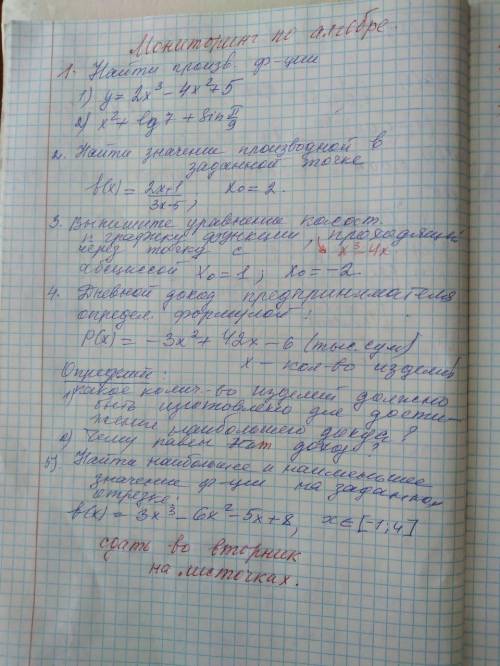 Мониторинг по алгебре.
1. Найти произв. ф-ции
1) y = 2x³ - 4x² + 5
2) x² + lg7 + sin π/9
2. Найти значение производной в
заданной точке
f(x) = (2x+1)/(3x-5), x₀ = 2.
3. Выпишите уравнение касат.
к графику функции, проходящей
x³ - 4x
через точку с
абсциссой x₀ = 1; x₀ = -2
4. Дневной доход предпринимателя
определ. формулой:
P(x) = -3x² + 42x - 6 (тыс. сум)
x - кол-во изделий
Определит:
1) какое колич-во изделий должно
быть изготовлено для дости-
жения наибольшего дохода?
2) Чему равен этот доход?
5) Найти наибольшее и наименьшее
значение ф-ции на заданном
отрезке:
f(x) = 3x³ - 6x² - 5x + 8, x ∈ [-1; 4]
сдать во вторник
на листочках.